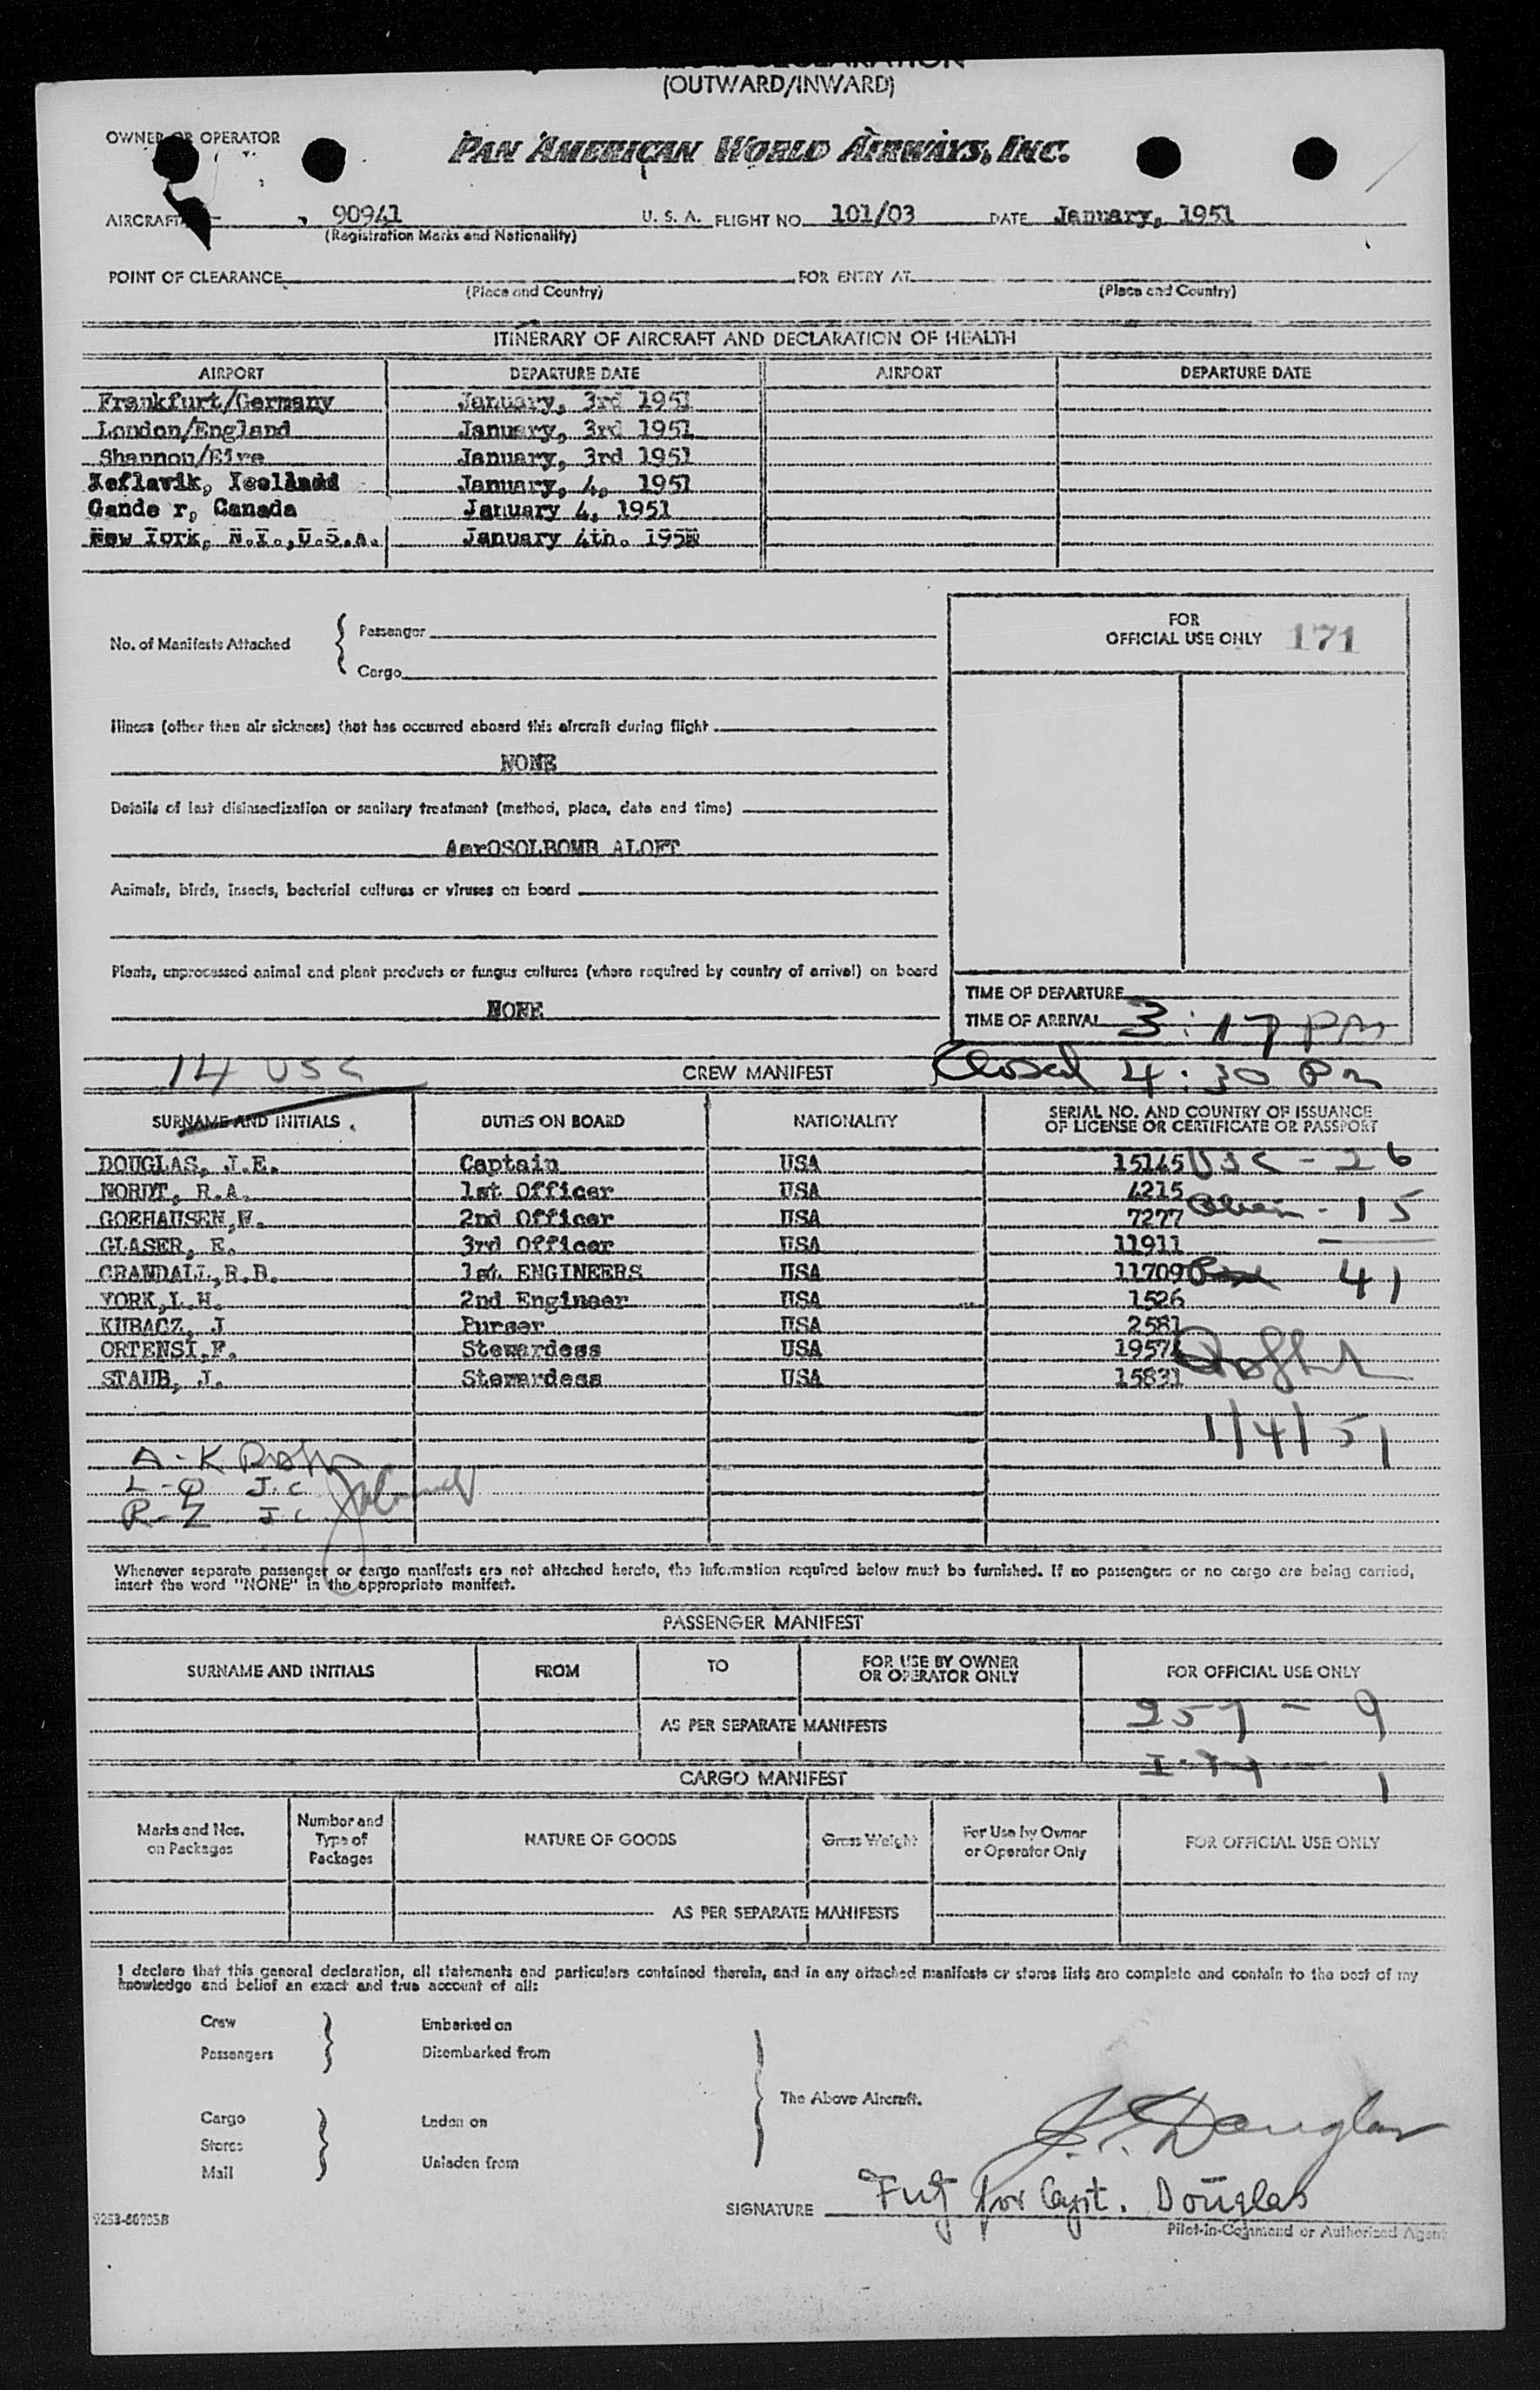 (OUTWARD/INWARD)
OWNER OR OPERATOR
PAN AMERICAN WORLD AIRWAYS, INC.
AIRCRAFT , 90941 U. S. A. FLIGHT NO. 101/03 DATE January, 1951
(Registration Marks and Nationality)
POINT OF CLEARANCE FOR ENTRY AT
(Place and Country) (Place and Country)
ITINERARY OF AIRCRAFT AND DECLARATION OF HEALTH
AIRPORT DEPARTURE DATE AIRPORT DEPARTURE DATE
Frankfurt/Germany January, 3rd 1951
London/England January, 3rd 1951
Shannon/Eire January, 3rd 1951
Keflavik, January, 4, 1951
Gande r, Canada January 4, 1951
New York, N.Y.,U.S.A. January 4th.
FOR
OFFICIAL USE ONLY 171
No. of Manifests Attached { Passenger
Cargo
Illness (other than air sickness) that has occurred aboard this aircraft during flight
NONE
Details of last disinsectization or sanitary treatment (method, place, date and time)
AerOSOLBOMB ALOFT
Animals, birds, insects, bacterial cultures or viruses on board
Plants, unprocessed animal and plant products or fungus cultures (where required by country of arrival) on board
NONE
TIME OF DEPARTURE
TIME OF ARRIVAL 3:17 PM
14 USC CREW MANIFEST Closed 4:30 Pm
SURNAME AND INITIALS DUTIES ON BOARD NATIONALITY SERIAL NO. AND COUNTRY OF ISSUANCE
OF LICENSE OR CERTIFICATE OR PASSPORT
DOUGLAS, J.E. Captain USA 15145 USC - 26
NORDT, R.A. 1st Officer USA 4215
GOEHAUSEN,W. 2nd Officer USA 7277 Alien - 15
GLASER, E. 3rd Officer USA 11911
CRANDALL,R.D. 1st ENGINEERS USA 11709 41
YORK,L.H. 2nd Engineer USA 1526
KUBACZ, J Purser USA 2581
ORTENSI,F. Stewardess USA
STAUB, J. Stewardess USA 15831
1/4/51
A-K
L-Q J.C
R-Z J C
Whenever separate passenger or cargo manifests are not attached hereto, the information required below must be furnished. If no passengers or no cargo are being carried,
insert the word "NONE" in the appropriate manifest.
PASSENGER MANIFEST
SURNAME AND INITIALS FROM TO FOR USE BY OWNER
OR OPERATOR ONLY FOR OFFICIAL USE ONLY
257 - 9
AS PER SEPARATE MANIFESTS
1
CARGO MANIFEST
Marks and Nos.
on Packages Number and
Type of
Packages NATURE OF GOODS Gross Weight For Use by Owner
or Operator Only FOR OFFICIAL USE ONLY
AS PER SEPARATE MANIFESTS
I declare that this general declaration, all statements and particulars contained therein, and in any attached manifests or stores lists are complete and contain to the best of my
knowledge and belief an exact and true account of all:
Crew Embarked on
Passengers Disembarked from
The Above Aircraft.
Cargo Laden on
Stores
Mail Unladen from
J.E. Douglas
SIGNATURE for Capt. Douglas
Pilot-in-Command or Authorized Agent
9253-60905B